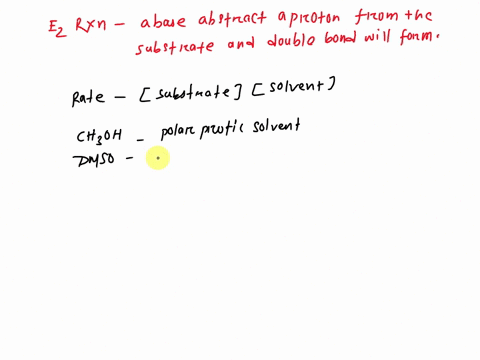 E2 Rxn - a base abstract a proton from the
substrate and double bond will form.
Rate - [substrate] [solvent]
CH3OH - polar protic solvent
DMSO -